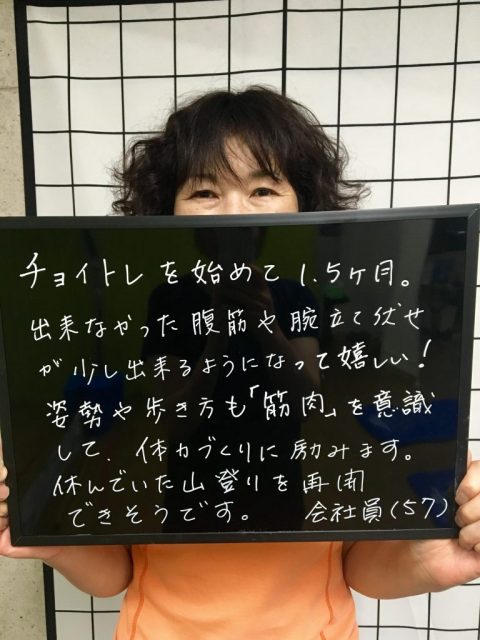 チョイトレを始めて1.5ヶ月。
出来なかった腹筋や腕立て伏せ
が少し出来るようになって嬉しい!
姿勢や歩き方も「筋肉」を意識
して、体力づくりに励みます。
休んでいた山登りを再開
できそうです。 会社員(57)